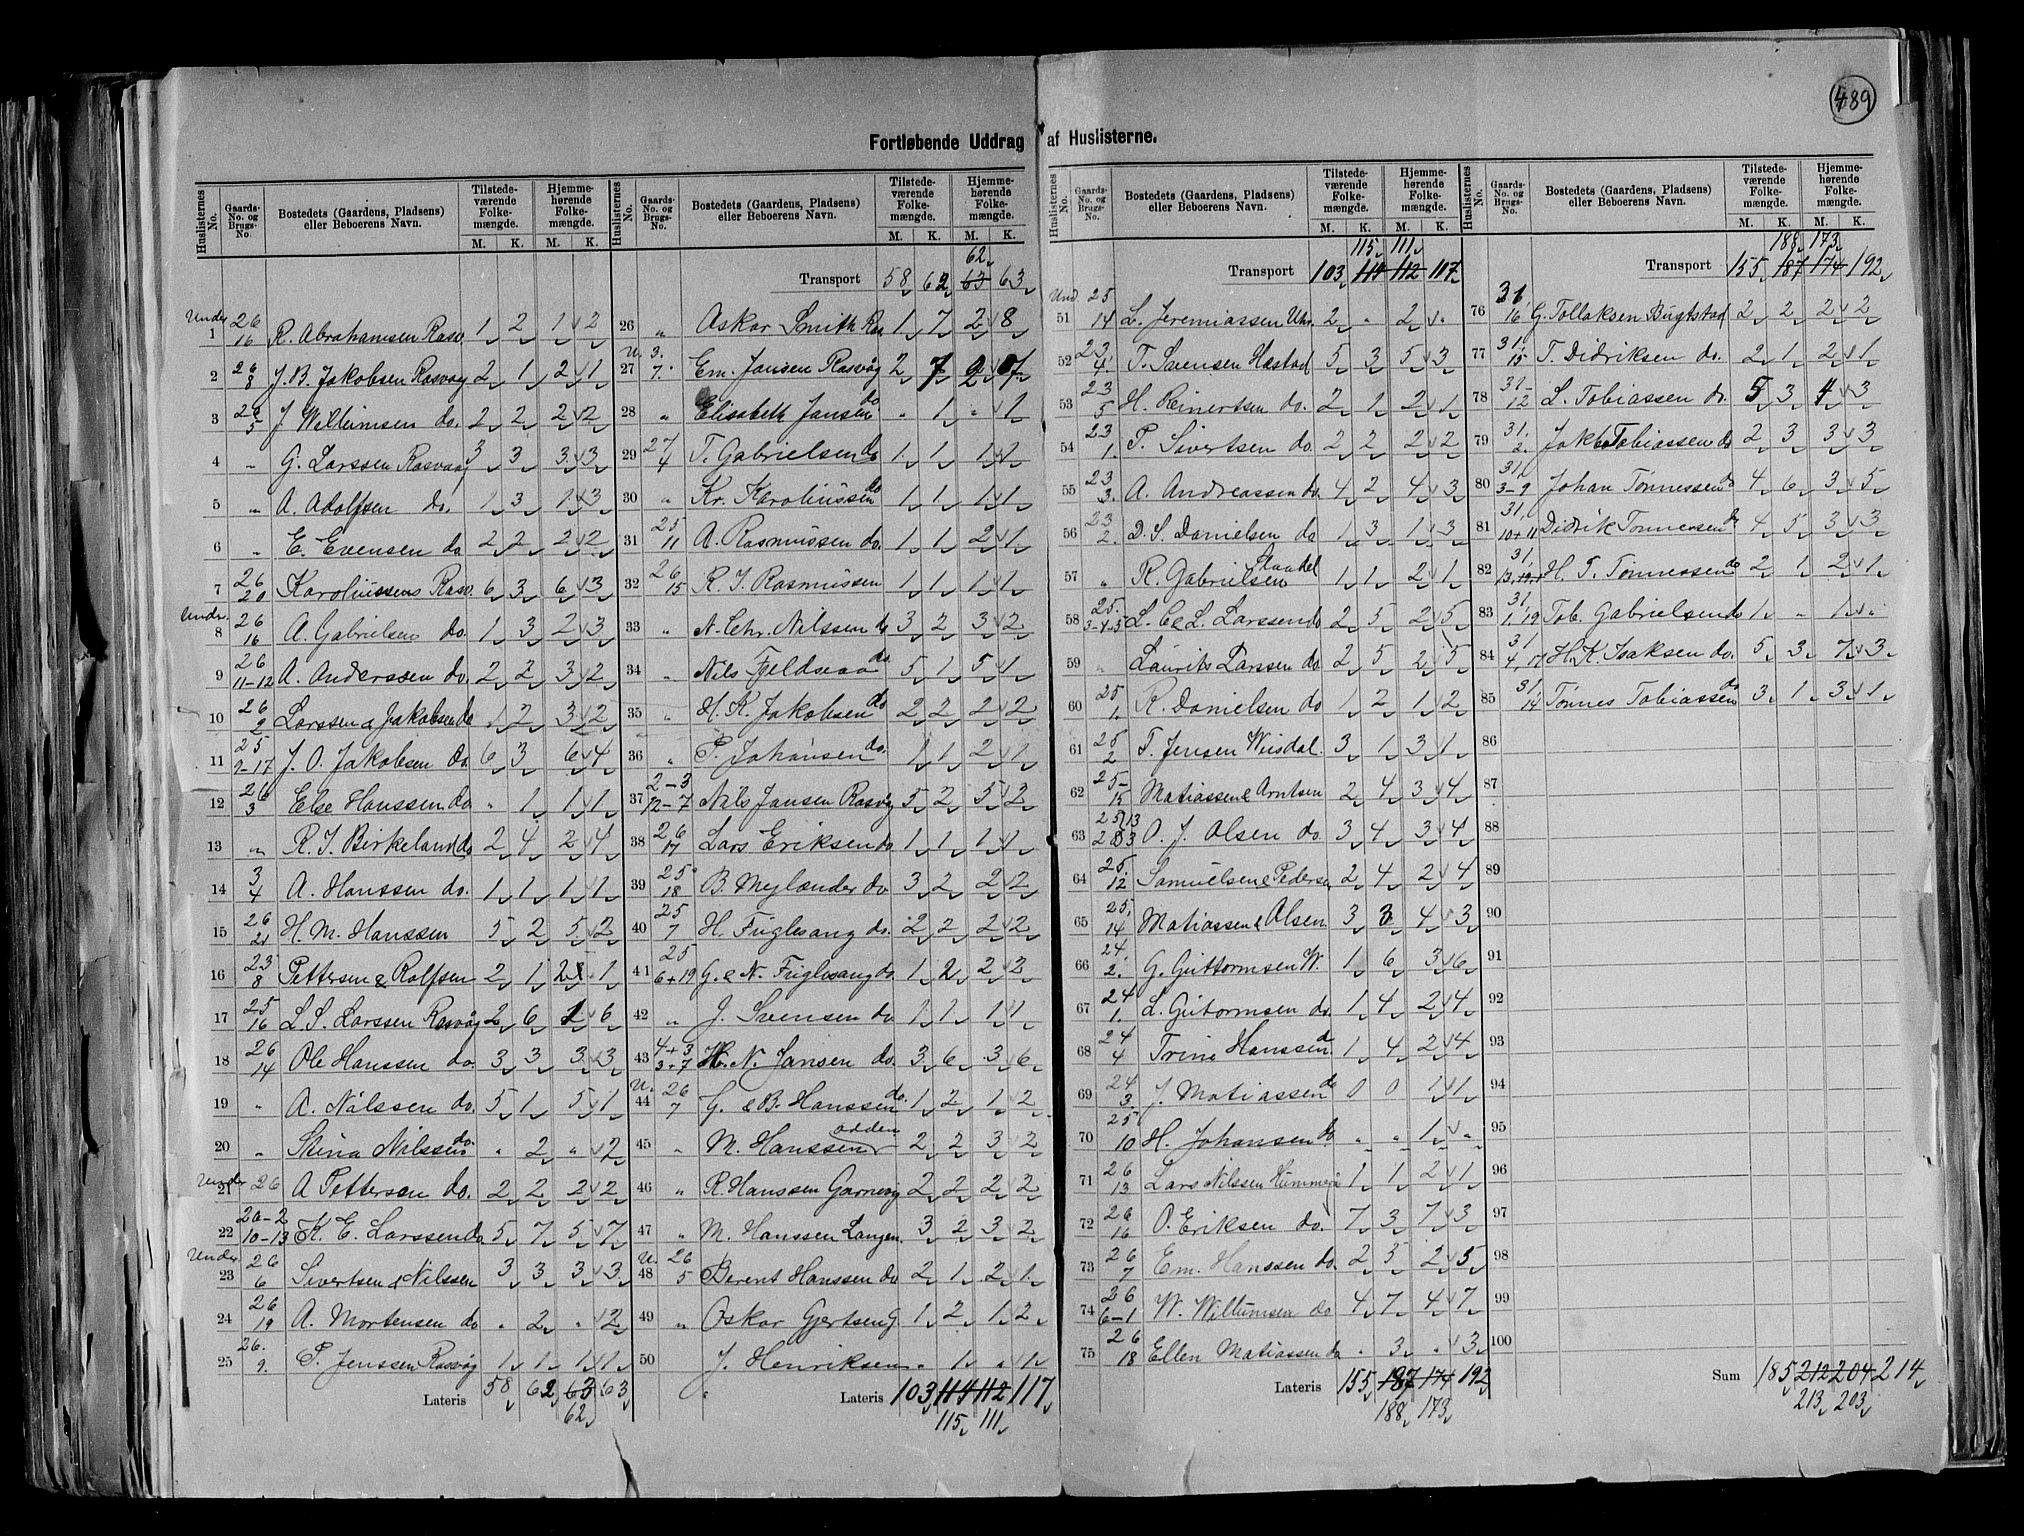 489
Fortløbende Uddrag af Huslisterne.
Huslisternes No. Gaards-No. og Brugs-No. Bostedets (Gaardens, Pladsens) eller Beboerens Navn. Tilstedeværende Folkemængde. Hjemmehørende Folkemængde.
M. K. M. K.
Under 1 26 16 R. Abrahamsen Rasv. 1 2 1 2
2 26 8 J. B. Jakobsen Rasvaag 2 1 2 1
3 26 5 J. Willumsen do. 2 2 2 2
4 " G. Larssen Rasvaag 3 3 3 3
5 " A. Adolfsen do. 1 3 1 3
6 " E. Evensen do 2 2 2 2
7 26 20 Karoliussens Rasv. 6 3 6 3
Under 8 26 16 A. Gabrielsen do. 1 3 2 3
9 26 11-12 A. Anderssen do. 2 2 3 2
10 26 2 Larssen & Jakobsen do 1 2 3 2
11 25 9-17 J. O. Jakobsen do. 6 3 6 4
12 26 3 Else Hanssen do " 1 1 1
13 " R. J. Birkeland do 2 4 2 4
14 3 4 A. Hanssen do. 1 1 1 1
15 26 21 H. M. Hanssen 5 2 5 2
16 23 8 Pettersen & Rolfsen 2 1 2 1
17 25 16 L. S. Larssen Rasvåg 2 6 1 6
18 26 14 Ole Hanssen do. 3 3 3 3
19 " A. Nilssen do. 5 1 5 1
20 " Stina Nilssen do. " 2 " 2
Under 21 26 A Pettersen do. 2 2 2 2
22 26-2 10-13 K. E. Larssen do. 5 7 5 7
Under 23 26 6 Sivertsen & Nilssen 3 3 3 3
24 26 19 A. Mortensen do " 2 " 2
25 26. 9. P. Jenssen Rasvåg 1 1 1 1
Lateris 58 62 63 63
62
62
Transport 58 62 63 63
26 " Askar Smith Ras 1 7 2 8
U. 27 3. 7. Em. Jansen Rasvåg 2 7 2 7
28 " Elisabeth Jansen do " 1 " 1
29 27 4 T. Gabrielsen do 1 1 1 1
30 " Kr. Karoliussen do 1 1 1 1
31 25 11 A. Rasmussen do. 1 1 2 1
32 26 15 R. J. Rasmussen 1 1 1 1
33 " N. Chr. Nilssen do 3 2 3 2
34 " Nils Fjeldsaa do. 5 1 5 1
35 " H. K. Jakobsen do 2 2 2 2
36 " P. Johansen do. 1 1 2 1
37 2-3 12-7 Nils Jansen Rasvåg 5 2 5 2
38 26 17 Lars Eriksen do 1 1 1 1
39 25 18 B. Mylænder do 3 2 2 2
40 25 7 H. Fuglesang do. 2 2 2 2
41 25 6+19 G. & N. Fuglesang do. 1 2 2 2
42 " J. Svensen do 1 1 1 1
43 4+3 3+7 H. N. Jansen do. 3 6 3 6
U. 44 26 7 G. & B. Hanssen do. 1 2 1 2
45 " M. Hanssen odden 2 2 3 2
46 " R. Hanssen Garnvig 2 2 2 2
47 " M. Hanssen Langen. 3 2 3 2
U. 48 26 5 Berent Hanssen do 2 1 2 1
49 " Oskar Gjertsen G. 1 2 1 2
50 " J. Henriksen " 1 " 1
Lateris 103 114 112 117
115 111
115 111
Transport 103 114 112 117
Und 51 25 14 L. Jeremiassen Uhr. 2 " 2 "
52 23 4. T. Svensen Hæstad 5 3 5 3
53 23 5 H. Reinertsen do. 2 1 2 1
54 23 1. P. Sivertsen do. 2 2 2 2
55 23 3. A. Andreassen do. 4 2 4 3
56 23 2. D. S. Danielsen do 1 3 1 3
57 " R. Gabrielsen 1 1 2 1
58 25. 3-4-5 L. C & L. Larssen do 2 5 2 5
59 " Laurits Larssen do 2 5 2 5
60 25 1. R. Danielsen do 1 2 1 2
61 25 2 T. Jensen Veisdal. 3 1 3 1
62 25- 15 Matiassen & Arntsen 2 4 3 4
63 O. J. Olsen do. 3 4 3 4
64 25. 12 Samuelsen & Pedersen 2 4 2 4
65 25, 14 Matiassen & Olsen 3 3 4 3
66 24 2. G. Guttormsen V. 1 6 3 6
67 24 1. L. Guttormsen do. 1 4 2 4
68 24 4 Trine Hanssen do 1 4 2 4
69 24 3. J. Matiassen do 0 0 1 1
70 25 10 H. Johansen do " " 1 "
71 26 13 Lars Nilssen Hummervi 1 1 2 1
72 26 16 O. Eriksen do. 7 3 7 3
73 26 7 Em. Hanssen do. 2 5 2 5
74 26 6-1 W. Willumsen do 4 7 4 7
75 26 18 Ellen Matiassen do " 3 " 3
Lateris 155 187 174 192
188 173
188 173
Transport 155 187 174 192
76 31, 16 G. Tollaksen Bugtstad 2 2 2 2
77 31, 15 T. Didriksen do. 2 1 2 1
78 31- 12 L. Tobiassen do. 5 3 4 3
79 31. 2. Jakob Tobiassen do 2 3 3 3
80 31, 3-9 Johan Tønnessen do 4 6 3 5
81 31, 10+11 Didrik Tønnessen do 4 5 3 3
82 31, H. T. Tønnessen do 2 1 2 1
83 31, 1, 19 Tob. Gabrielsen do 1 " 1 "
84 31 4, 17 H. K. Isaksen do. 5 3 7 3
85 31, 14 Tønnes Tobiassen do 3 1 3 1
86
87
88
89
90
91
92
93
94
95
96
97
98
99
100
Sum 185 212 204 214
213 203